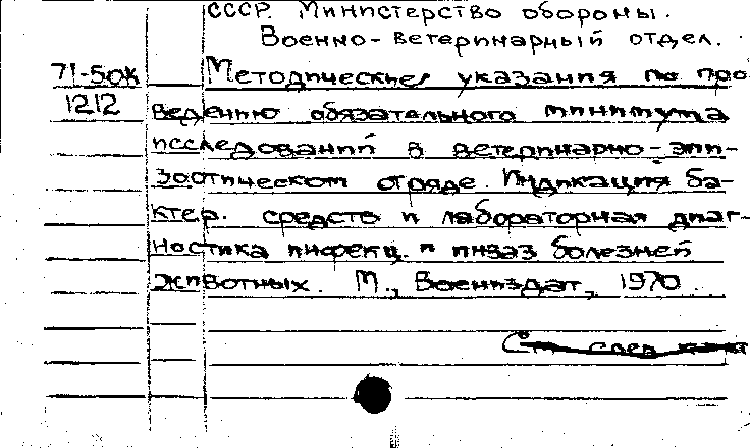 СССР. Министерство обороны.
Военно-ветеринарный отдел.
71-50ж Методические указания по про
1212 ведению обязательного минимума
исследований в ветеринарно-эпи-
зоотическом отряде. Индикация ба-
ктер. средств и лабораторная диаг-
ностика инфекц. и инваз болезней
животных. М., Воениздат, 1970.
См. след